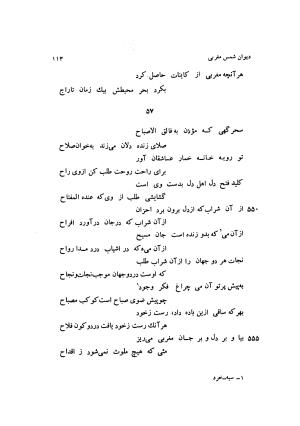 دیوان شمس مغربی
۱۱۳
هر آنچه مغربی از کاینات حاصل کرد
بکرد بحر محیطش بیك زمان تاراج
۵۷
سحرگهی که مؤذن به فالق الاصباح
صلای زنده دلان می‌زند به‌خوان صلاح
تو رو به خانه خمار عاشقان آور
برای راحت روحت طلب کن از وی راح
کلید فتح دل اهل دل بدست وی است
گشایشی طلب از وی که عنده المفتاح
۵۵۰ از آن شراب که از دل برون برد احزان
از آن شراب که در جان درآورد افراح
از آن می‌ که بدو زنده است جان مسیح
از آن می که در اشباح در دمد ارواح
نجات هر دو جهان را از آن شراب طلب
که اوست در دو جهان موجب نجات و نجاح
به پیش پرتو آن می چراغ فکر وجود
چو پیش ضوی صباح است کوکب مصباح
بهر که ساقی ازین باده داد، رست ز خود
هر آنك رست ز خود یافت در دو کون فلاح
۵۵۵ بیا و بر دل و بر جان مغربی می‌ریز
مئی که هیچ ملوث نمی‌شود ز اقداح